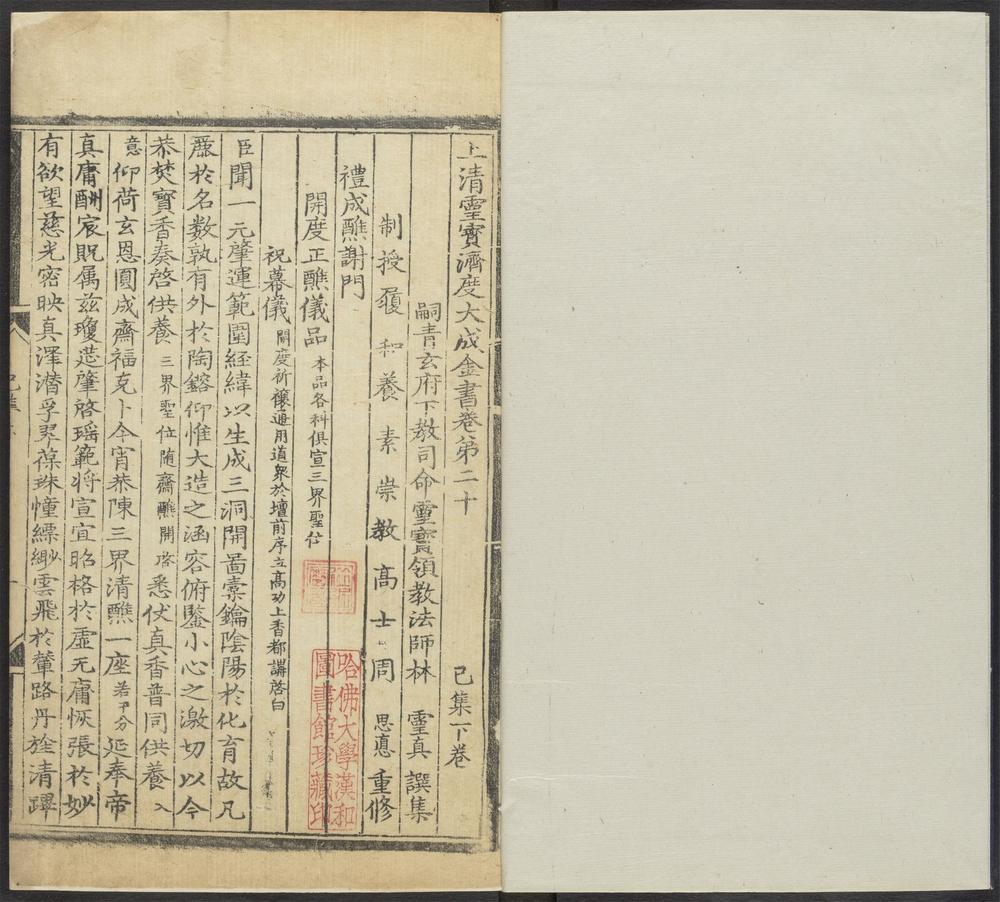 上清靈寶濟度大成金書卷第二十
己集下卷
嗣青玄府下教司命靈寶領教法師林 靈真 譔集
制授履和養素崇教高士周 思悳 重修
禮成醮謝門
開度正醮儀品 本品各科俱宣三界聖位
祝幕儀 開度祈禳通用道眾於壇前序立高功上香都講啓白
臣聞一元肇運範圍經緯以生成三洞開啚橐鑰陰陽於化育故凡
麗於名数孰有外於陶鎔仰惟大造之涵容俯鑒小心之激切以今
恭焚寳香奏啓供養 三界聖位隨齋醮開啓 悉伏真香普同供養 入
意 仰荷玄恩圓成齋福克卜今宵恭陳三界清醮一座 若干分 延奉帝
真庸酬宸貺属兹瓊莚肇啓瑶範将宣宜昭格於虛无庸恢張於妙
有欲望慈光密映真澤潛孚翠葆珠幢縹緲雲飛於輦路丹旌清蹕
哈佛大學漢和
圖書館珍藏印